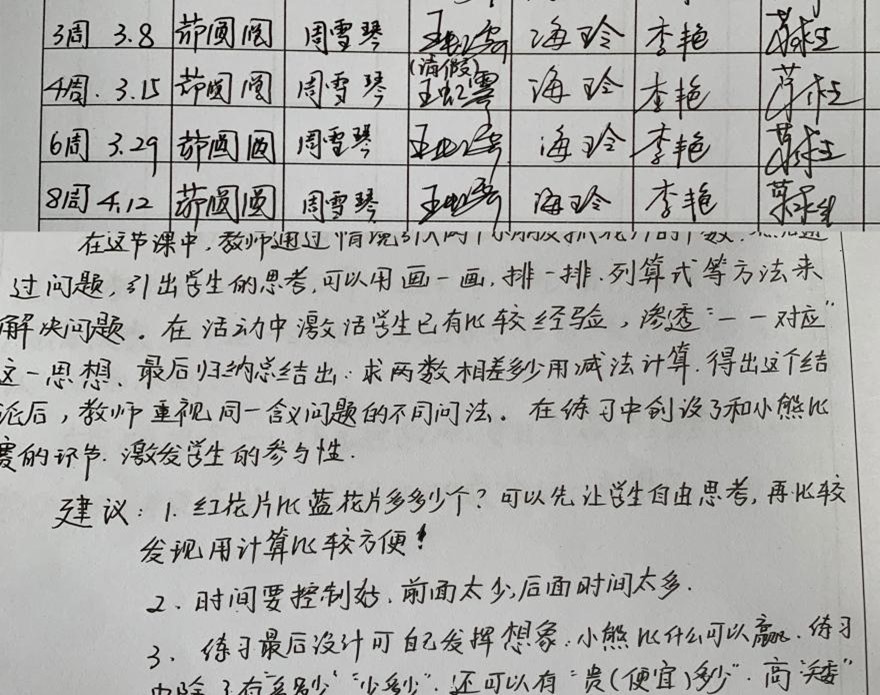 3周 3.8 茆圆圆 周雪琴 海玲 李艳
(请假)
4周. 3.15 茆圆圆 周雪琴 王虹霞 海玲 李艳
6周 3.29 茆圆圆 周雪琴 海玲 李艳
8周 4.12 茆圆圆 周雪琴 海玲 李艳
在这节课中,教师通过情境引入两个小朋友抓花片的个数.然后通
过问题,引出学生的思考,可以用画一画,排一排.列算式等方法来
解决问题。在活动中激活学生已有比较经验,渗透“一一对应”
这一思想、最后归纳总结出:求两数相差多少用减法计算.得出这个结
论后,教师重视同一含义问题的不同问法。在练习中创设了和小熊比
赛的环节.激发学生的参与性.
建议:1.红花片比蓝花片多多少个?可以先让学生自由思考,再比较
发现用计算比较方便!
2.时间要控制好.前面太少,后面时间太多.
3.练习最后设计可自己发挥想象.小熊比什么可以赢.练习
中除了有“多多少”“少多少”.还可以有“贵(便宜)多少”.高